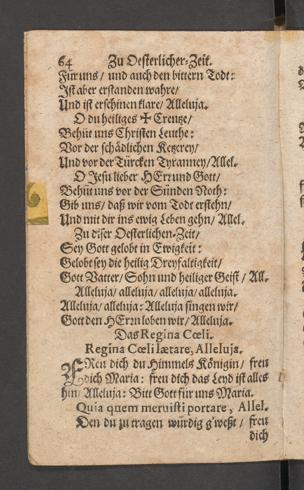 64 Zu Oesterlicher-Zeit.
Für uns / und auch den bittern Todt:
Ist aber erstanden wahre /
Und ist erschinen klare / Alleluja.
O du heiliges ✠ Creutze /
Behüt uns Christen Leuthe:
Vor der schädlichen Ketzerey /
Und vor der Türcken Tyranney / Allel.
O Jesu lieber HErr und Gott /
Behüt uns vor der Sünden Noth:
Gib uns / daß wir vom Todt erstehn /
Und mit dir ins ewig Leben gehn / Allel.
Zu diser Oesterlichen-Zeit /
Sey Gott gelobt in Ewigkeit:
Gelobt sey die heilig Dreyfaltigkeit /
Gott Vatter / Sohn und heiliger Geist / All.
Alleluja / alleluja / alleluja / alleluja.
Alleluja / alleluja: Alleluja singen wir /
Gott den HErrn loben wir / Alleluja.
Das Regina Cœli.
Regina Cœli lætare, Alleluja.
FRen dich du Himmels Königin / freu
dich Maria: freu dich das Leyd ist alles
hin / Alleluja: Bitt Gott für uns Maria.
Quia quem meruisti portare, Allel.
Den du zu tragen würdig g'weßt / freu
dich